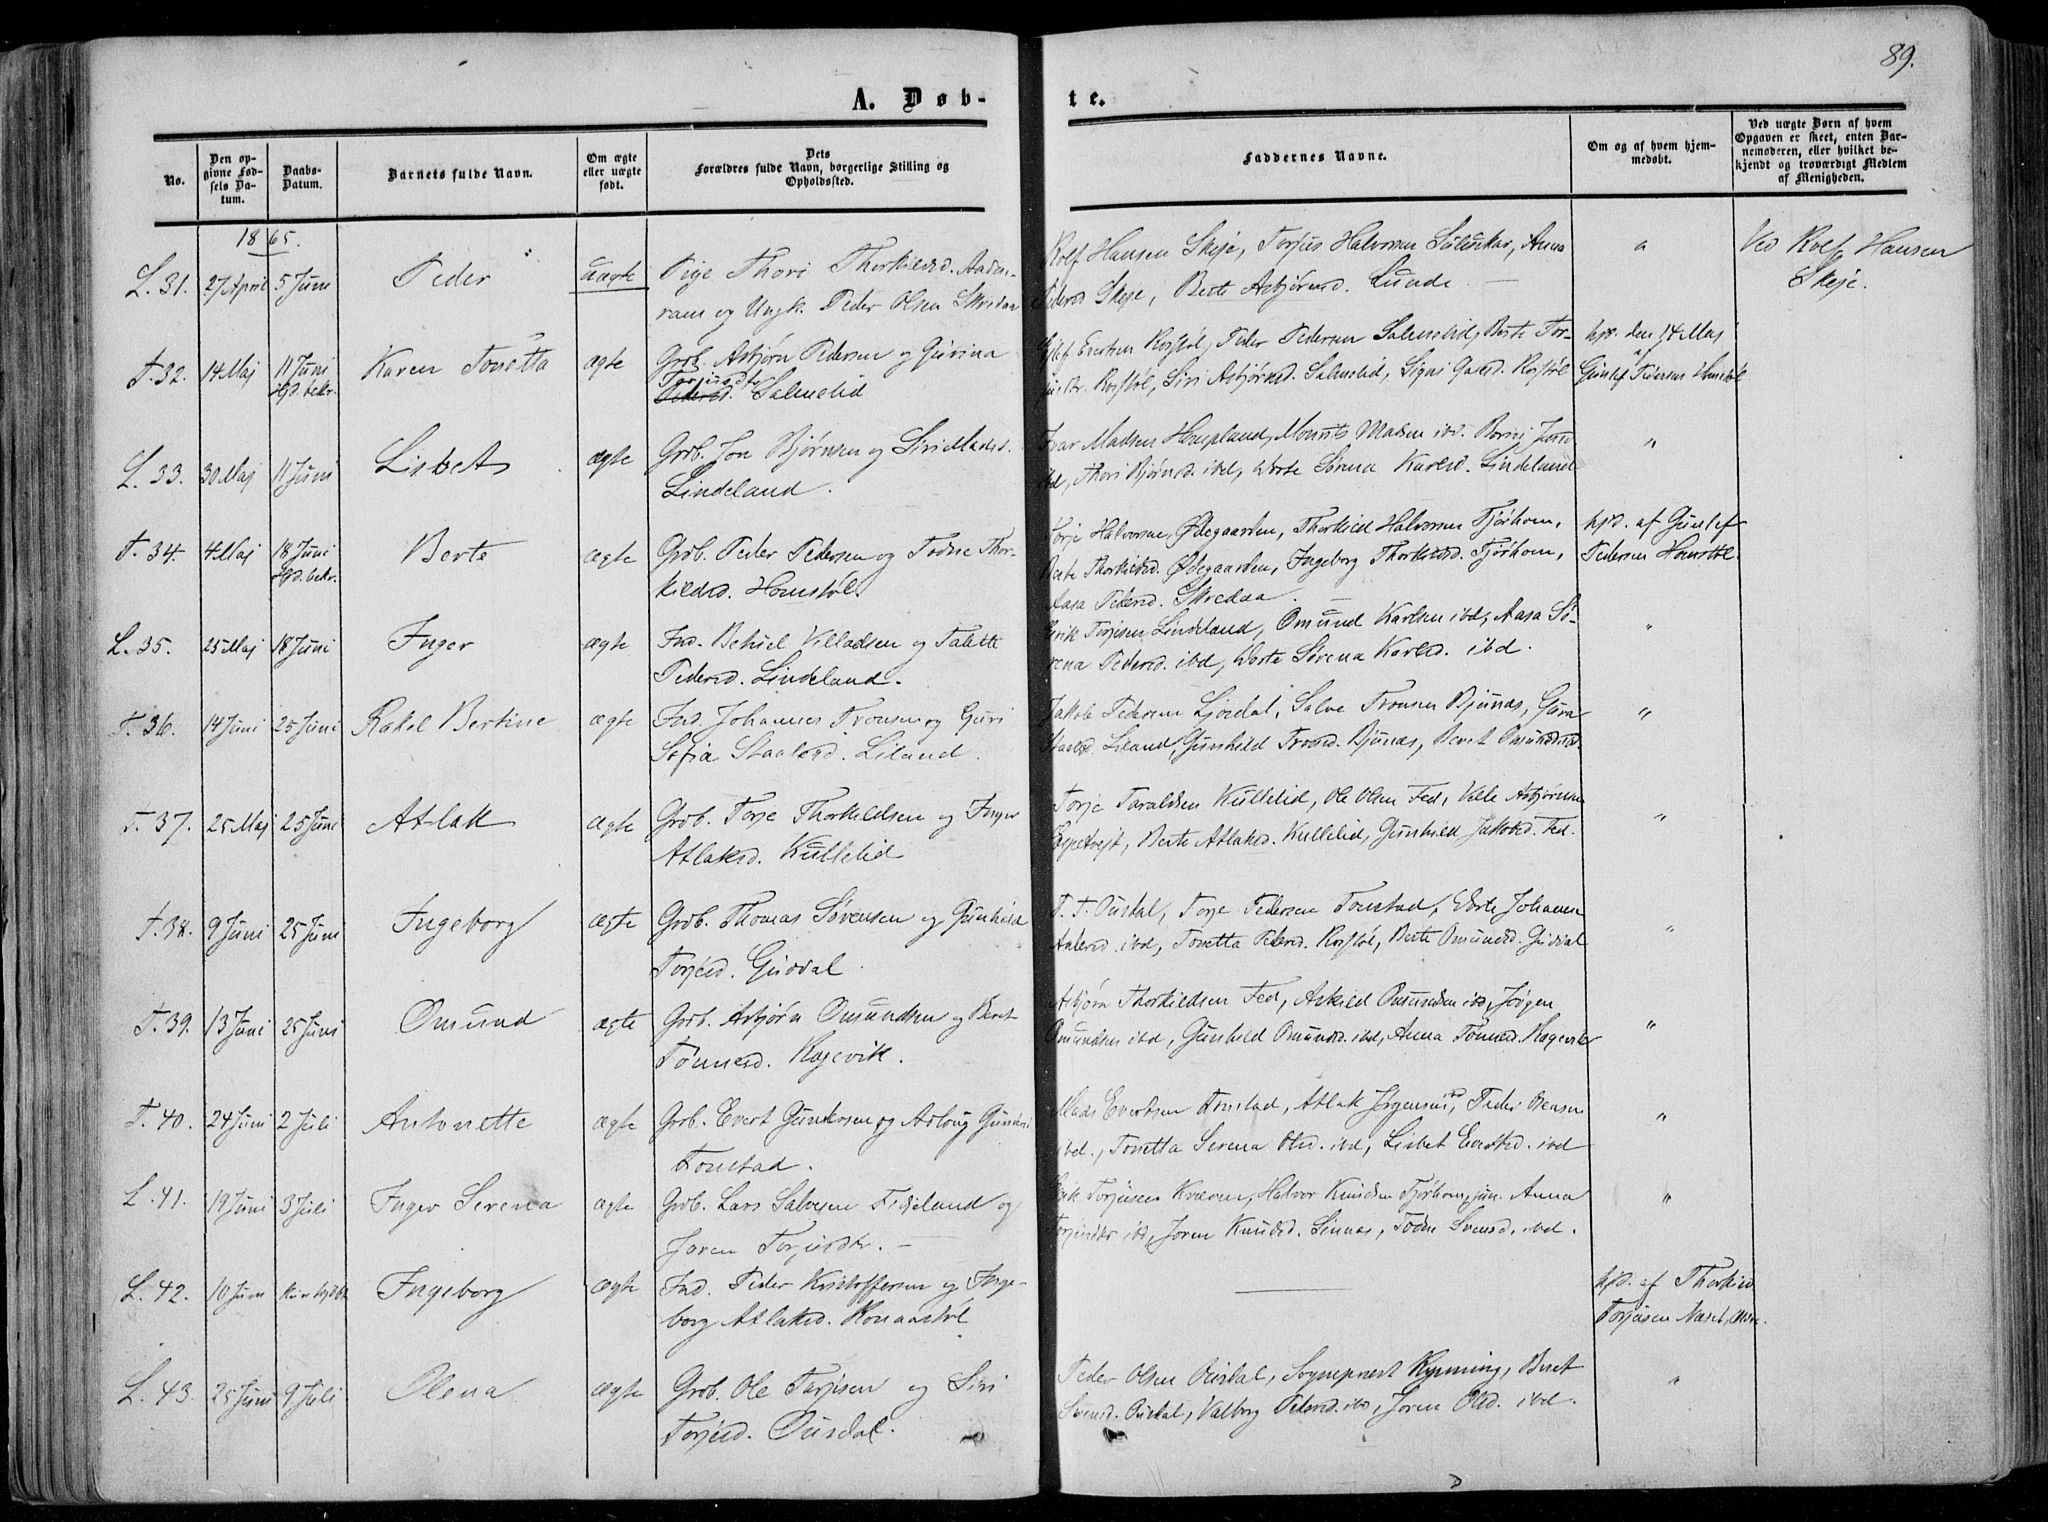 89.
A. Døb-
te.
No.
Den op-
givne Fød-
sels Da-
tum.
Daabs-
Datum.
Barnets fulde Navn.
Om ægte
eller uægte
født.
Dets
Forældres fulde Navn, borgerlige Stilling og
Opholdssted.
Faddernes Navne.
Om og af hvem hjem-
medøbt.
Ved uægte Børn af hvem
Opgaven er skeet, enten Bar-
nemoderen, eller hvilket be-
kjendt og troværdigt Medlem
af Menigheden.
1865.
L. 31. 27 April 5 Juni Peder uægte Pige Thori Thorkildsd. Aaden-
ram og Ungk. Peder Olsen Skredaa
Rolf Hansen Skeje, Torjus Halvorsen, Anna
Pedersd Skeje, Berte Asbjørnsd. Lunde. —
"
Ved Rolf Hansen
Skeje.
T. 32. 14 Maj 11 Juni Karen Tonetta ægte Grdb. Asbjørn Pedersen og Gurina
hjd. bekr. Torjusdtr
Pedersd. Salmelid
Evertsen Rosstøl, Peder Pedersen Salmelid, Berte Tor-
jusdtr. Rosstøl, Siri Asbjørnsd. Salmelid, Signi Rosstøl
hjd. den 14 Maj
af
Gunlef Pedersen Homstøl
L. 33. 30 Maj 11 Juni Lisbet ægte Grdb. Jon Bjørnsen og Siri Madsd.
Lindeland.
Ivar Madsen Haugland, Mourits Madsen ibd.
ibd, Thori Bjørnsd. ibd, Dorte Sørena Karlsd. Lindeland
"
T. 34. 4 Maj 18 Juni Berte ægte Grdb. Peder Pedersen og Todne Thor-
hjd. bekr. kildsd. Homstøl.
Børje Halvorsen Ødegaarden, Thorkild Halvorsen Tjørhom,
Berte Thorkildsd. Ødegaarden, Ingeborg Thorkildsd. Tjørhom,
Aasa Pedersd. Skredaa. —
hjd. af Gunlef
Pedersen Homstøl.
L. 35. 25 Maj 18 Juni Inger ægte Ind. Betuel Villadsen og Talette
Pedersd. Lindeland.
Erik Torjesen Lindeland, Omund Karlsen ibd, Aasa Sø-
rena Pedersd. ibd, Dorte Sørena Karlsd. ibd.
"
T. 36. 14 Juni 25 Juni Rakel Bertine ægte Ind. Johannes Tronsen og Guri
Sofia Staalesd. Liland.
Jakob Pedersen Ljosdal, Salve Tronsen Bjunes, Gura
Staalesd. Liland, Gunhild Tronsd. Bjunes, Beret Omundsd.
"
T. 37. 25 Maj 25 Juni Atlak ægte Grdb. Torje Thorkildsen og Inger
Atlaksd. Kullelid
Torje Taraldsen Kullelid, Ole Olsen Fed, Valle Asbjørnsen
Espetvejt, Berte Atlaksd. Kullelid, Gunhild Jakobsd. Fed.
"
T. 38. 9 Juni 25 Juni Ingeborg ægte Grdb. Thomas Sørensen og Gunhild
Torjesd. Guddal.
T. T. Ousdal, Torje Pedersen Tonstad, Dorte Johanna
Anbersd. ibd, Tonetta Pedersd. Rosstøl, Berte Omundsd. Gudal
"
T. 39. 13 Juni 25 Juni Omund ægte Grdb. Asbjørn Omundsen og Beret
Tønnesd. Røgevik.
Asbjørn Thorkildsen Fed, Askild Omundsen ibd, Jørgen
Omundsen ibd, Gunhild Omundsd. ibd, Anna Tønnesd. Røgevik
"
T. 40. 24 Juni 2 Juli Antonette ægte Grdb. Evert Gundersen og Aslaug Gundersd
Tonstad.
Mads Evertsen Tonstad, Atlak Jørgensen ibd, Peder Bensen
ibd., Tonetta Serena Olsd. ibd, Lisbet Evertsd. ibd
"
L. 41. 19 Juni 3 Juli Inger Serena ægte Grdb. Lars Salvesen Fidjeland og
Joren Torjusdtr. —
Erik Torjusen Kvæven, Halvor Knudsen Tjørhom, jun. Anna
Torjusdtr ibd, Joren Knudsd. Sinnes, Todne Svensd. ibd.
"
L. 42. 10 Juni kun hjdbt. Ingeborg ægte Ind. Peder Kristoffersen og Inge-
borg Atlaksd. Konaastøl
—
hjd. af Thorkild
Torjusen Næset, Aasne.
L. 43. 25 Juni 9 Juli Olena ægte Grdb. Ole Torjesen og Siri
Torjesd. Ousdal.
Peder Olsen Ousdal, Sognepræst Kynning, Beret
Svensd. Ousdal, Valborg Pedersd. ibd, Joren Olsd. ibd.
"